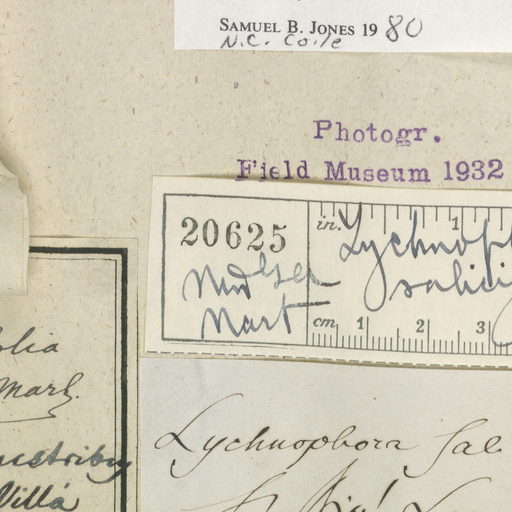 SAMUEL B. JONES 19 80
N.C. Coile
Photogr.
Field Museum 1932
20625
in.
1
Lychnoph
salici
Mart
cm 1 2 3
olia
Mart.
Villa
Lychnophora Sal